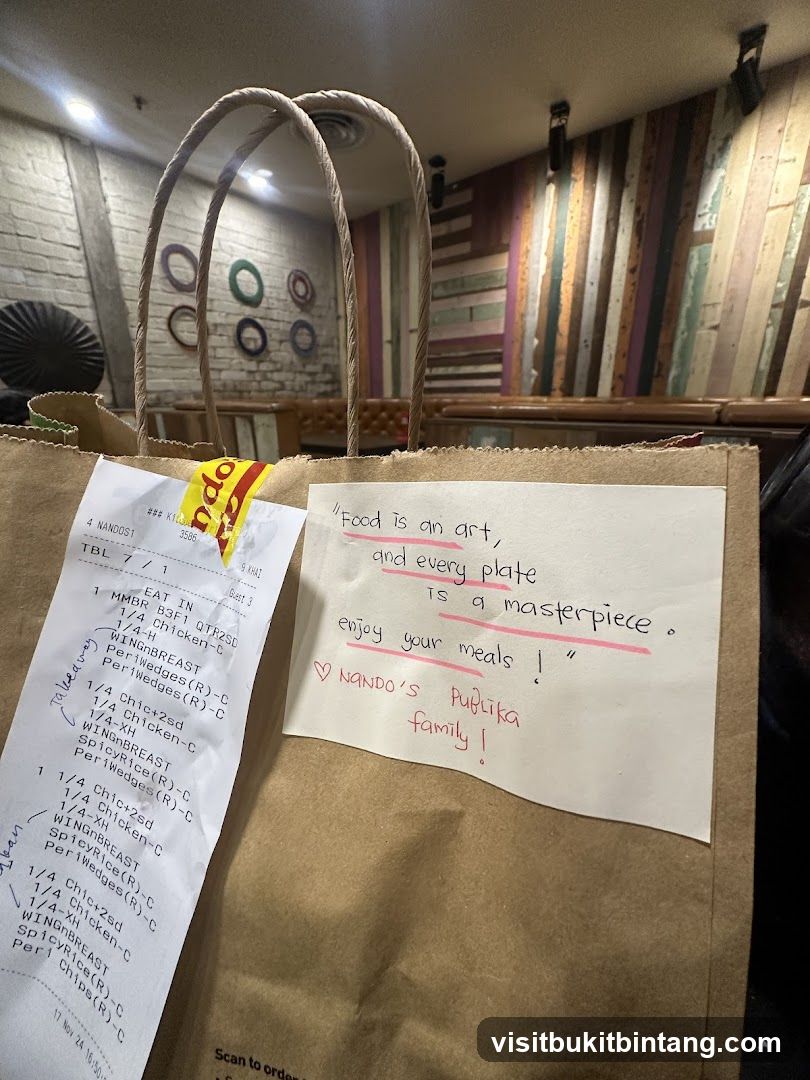 ndo
### Ki
3586
4 NANDOS1
9 KHAI
TBL 7 / 1
Guest 3
EAT IN
1 MMBR B3F1 QTR2SD
1/4 Chicken-C
1/4-H
WINGnBREAST
PeriWedges(R)-C
PeriWedges(R)-C
Takeaway
1/4 Chic+2sd
1/4 Chicken-C
1/4-XH
WINGnBREAST
SpicyRice(R)-C
PeriWedges(R)-C
1 1/4 Chic+2sd
1/4 Chicken-C
1/4-XH
WINGnBREAST
SpicyRice(R)-C
PeriWedges(R)-C
1/4 Chic+2sd
1/4 Chicken-C
1/4-XH
WINGnBREAST
SpicyRice(R)-C
Peri Chips(R)-C
17 Nov 24 16:50
"Food is an art,
and every plate
is a masterpiece.
enjoy your meals! "
♡ NANDO'S PUBLIKA
family!
Scan to order
visitbukitbintang.com